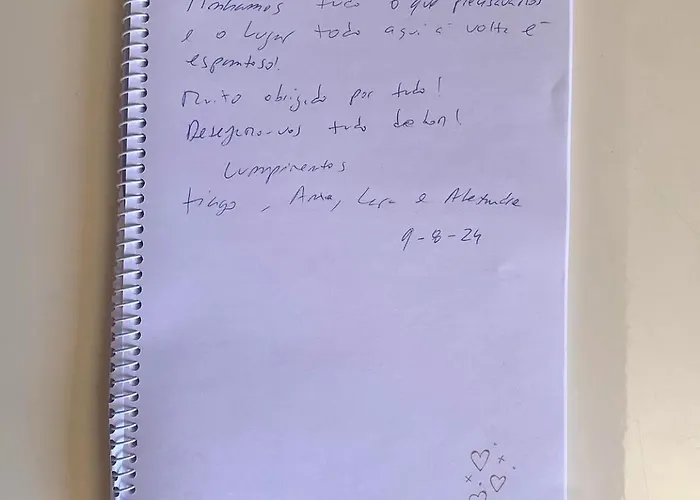 Tínhamos tudo o que precisávamos
e o lugar todo aqui à volta é
espantoso!
Muito obrigado por tudo!
Desejamo-vos tudo de bom!
Cumprimentos
Tiago, Ana, Lara e Alexandre
9-8-24